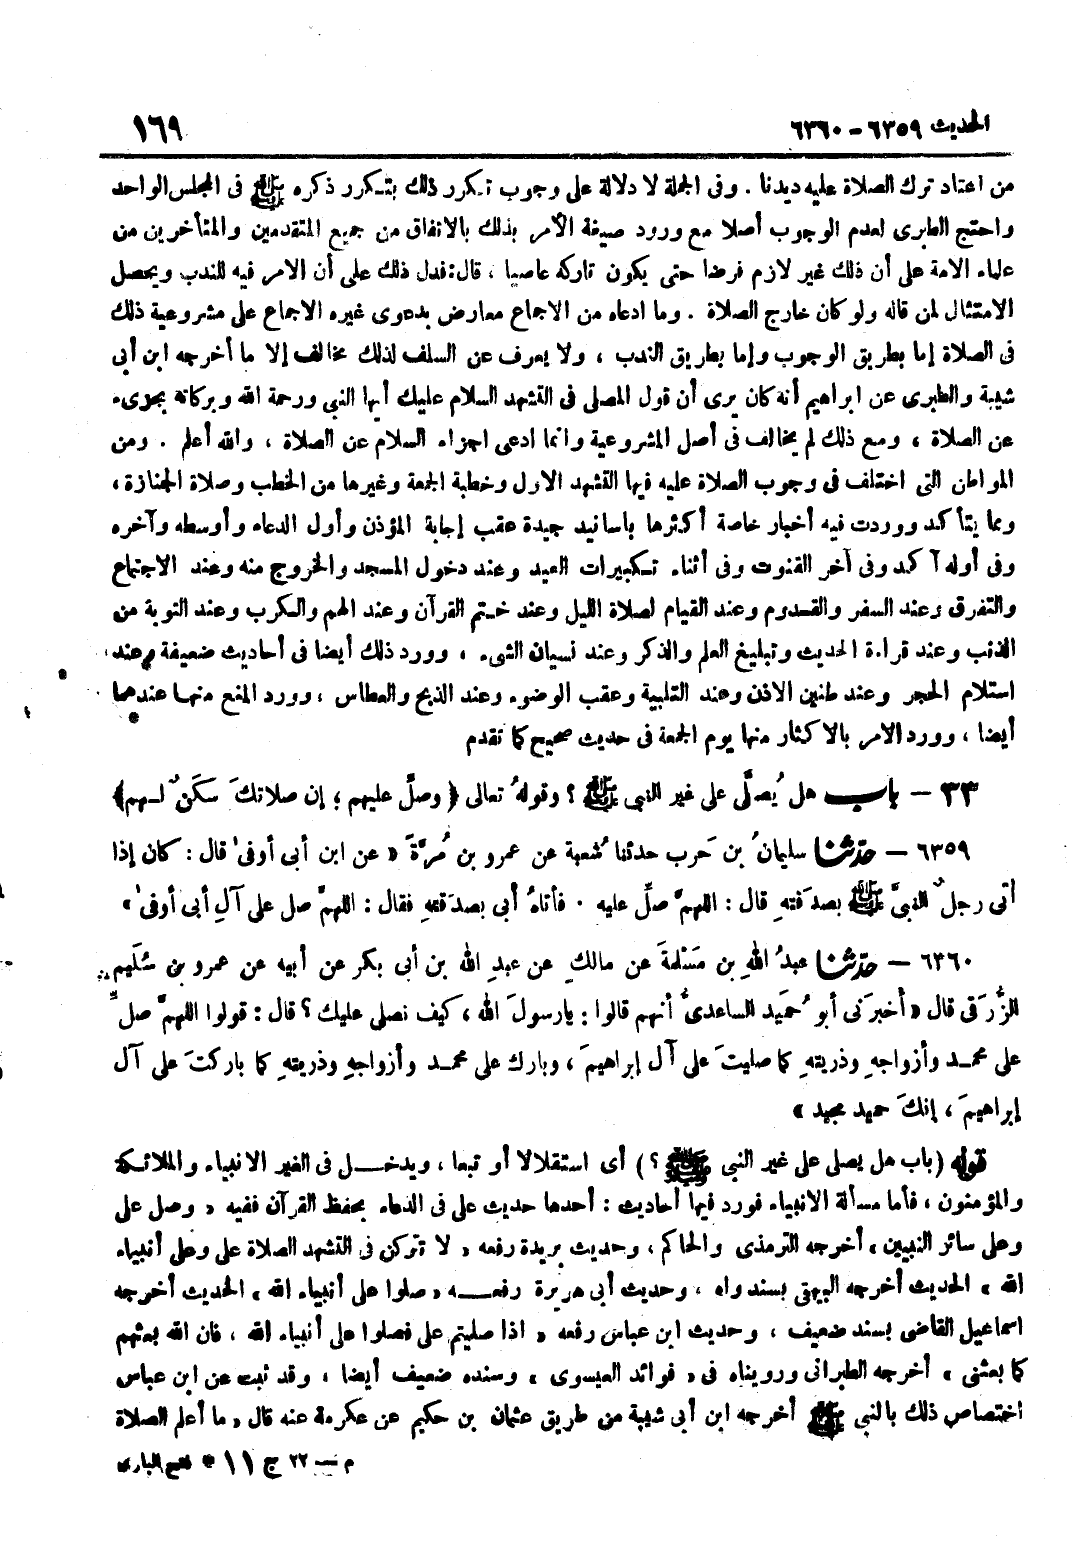 الحديث ٦٣٥٩ - ٦٣٦٠ ١٦٩
من اعتاد ترك الصلاة عليه ديدنا . وفى الجملة لا دلالة على وجوب تكرر ذلك بتكرر ذكره ﷺ فى المجلس الواحد
واحتج الطبرى لعدم الوجوب أصلا مع ورود صيغة الأمر بذلك بالاتفاق من جميع المتقدمين والمتأخرين من
علماء الامة على أن ذلك غير لازم فرضا حتى يكون تاركه عاصيا ، قال : فدل ذلك على أن الامر فيه للندب ويحصل
الامتثال لمن قاله ولو كان خارج الصلاة . وما ادعاه من الاجماع معارض بدعوى غيره الاجماع على مشروعية ذلك
فى الصلاة إما بطريق الوجوب وإما بطريق الندب ، ولا يعرف عن السلف لذلك مخالف إلا ما أخرجه ابن أبى
شيبة والطبرى عن ابراهيم أنه كان يرى أن قول المصلى فى التشهد السلام عليك أيها النبى ورحمة الله وبركاته يجزىء
عن الصلاة ، ومع ذلك لم يخالف فى أصل المشروعية وانما ادعى اجزاء السلام عن الصلاة ، والله أعلم . ومن
المواطن التى اختلف فى وجوب الصلاة عليه فيها التشهد الاول وخطبة الجمعة وغيرها من الخطب وصلاة الجنازة ،
ومما يتأكد ووردت فيه أخبار خاصة أكثرها بأسانيد جيدة عقب إجابة المؤذن وأول الدعاء وأوسطه وآخره
وفى أوله آكد وفى آخر القنوت وفى أثناء تكبيرات العيد وعند دخول المسجد والخروج منه وعند الاجتماع
والتفرق وعند السفر والقدوم وعند القيام لصلاة الليل وعند ختم القرآن وعند الهم والكرب وعند التوبة من
الذنب وعند قراءة الحديث وتبليغ العلم والذكر وعند نسيان الشىء ، وورد ذلك أيضا فى أحاديث ضعيفة وعند
استلام الحجر وعند طنين الاذن وعند التلبية وعقب الوضوء وعند الذبح والعطاس ، وورد المنع منها عندهما
أيضا ، وورد الامر بالاكثار منها يوم الجمعة فى حديث صحيح كما تقدم
٣٣ - باب هل يُصلَّى على غير النبي ﷺ ؟ وقولهُ تعالى ﴿ وصلِّ عليهم ؛ إن صلاتك سكَنٌ لهم ﴾
٦٣٥٩ - حدّثنا سليمانُ بن حَرب حدثنا شُعبة عن عمرو بن مُرَّةَ « عن ابن أبى أوفىٰ قال : كان إذا
أتى رجلٌ النبيَّ ﷺ بصدَقتهِ قال : اللهمَّ صلِّ عليه . فأتاهُ أبى بصدَقتهِ فقال : اللهمَّ صل على آلِ أبى أوفىٰ »
٦٣٦٠ - حدّثنا عبدُ اللهِ بن مَسْلمةَ عن مالكٍ عن عبدِ الله بن أبى بكر عن أبيه عن عمرو بن سُلَيم
الزُّرَقى قال « أخبرَنى أبو حُمَيد الساعدىُّ أنهم قالوا : يارسولَ الله ، كيف نصلى عليك ؟ قال : قولوا اللهمَّ صلِّ
على محمد وأزواجهِ وذريتهِ كما صليتَ على آل إبراهيمَ ، وبارك على محمد وأزواجهِ وذريتهِ كما باركتَ على آل
إبراهيمَ ، إنكَ حميد مجيد »
قوله ( باب هل يصلى على غير النبي ﷺ ؟ ) أى استقلالا أو تبعا ، ويدخل فى الغير الانبياء والملائكة
والمؤمنون ، فأما مسألة الانبياء فورد فيها أحاديث : أحدها حديث على فى الدعاء بحفظ القرآن ففيه « وصل على
وعلى سائر النبيين » أخرجه الترمذى والحاكم ، وحديث بريدة رفعه « لا تتركن فى التشهد الصلاة على وعلى أنبياء
الله » الحديث أخرجه البيهقى بسند واه ، وحديث أبى هريرة رفعه « صلوا على أنبياء الله » الحديث أخرجه
اسماعيل القاضى بسند ضعيف ، وحديث ابن عباس رفعه « اذا صليتم على فصلوا على أنبياء الله ، فان الله بعثهم
كما بعثنى » أخرجه الطبرانى ورويناه فى « فوائد العيسوى » وسنده ضعيف أيضا ، وقد ثبت عن ابن عباس
اختصاص ذلك بالنبي ﷺ أخرجه ابن أبى شيبة من طريق عثمان بن حكيم عن عكرمة عنه قال « ما أعلم الصلاة
م — ٢٢ ج ١١ * فتح البارى